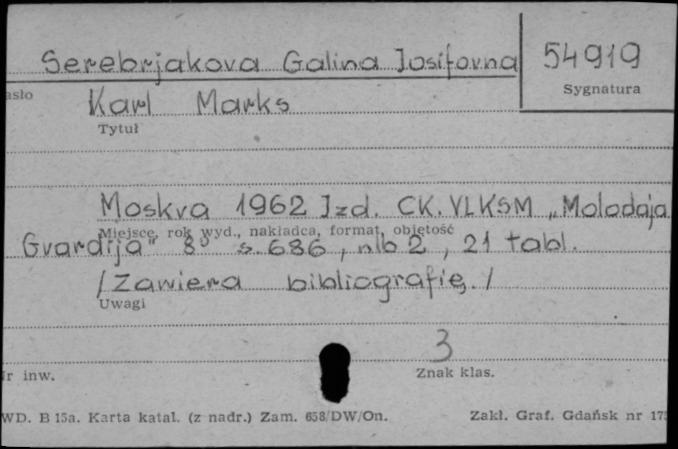 Serebrjakova Galina Josifovna 54919
asło Sygnatura
Karl Marks
Tytuł
Moskva 1962 Izd. CK. VLKSM „Molodaja
Miejsce, rok wyd., nakładca, format, objętość
Gvardija" 8° s. 686, nlb 2, 21 tabl.
/Zawiera bibliografię./
Uwagi
3
r inw. Znak klas.
WD. B 15a. Karta katal. (z nadr.) Zam. 658/DW/On. Zakł. Graf. Gdańsk nr 17